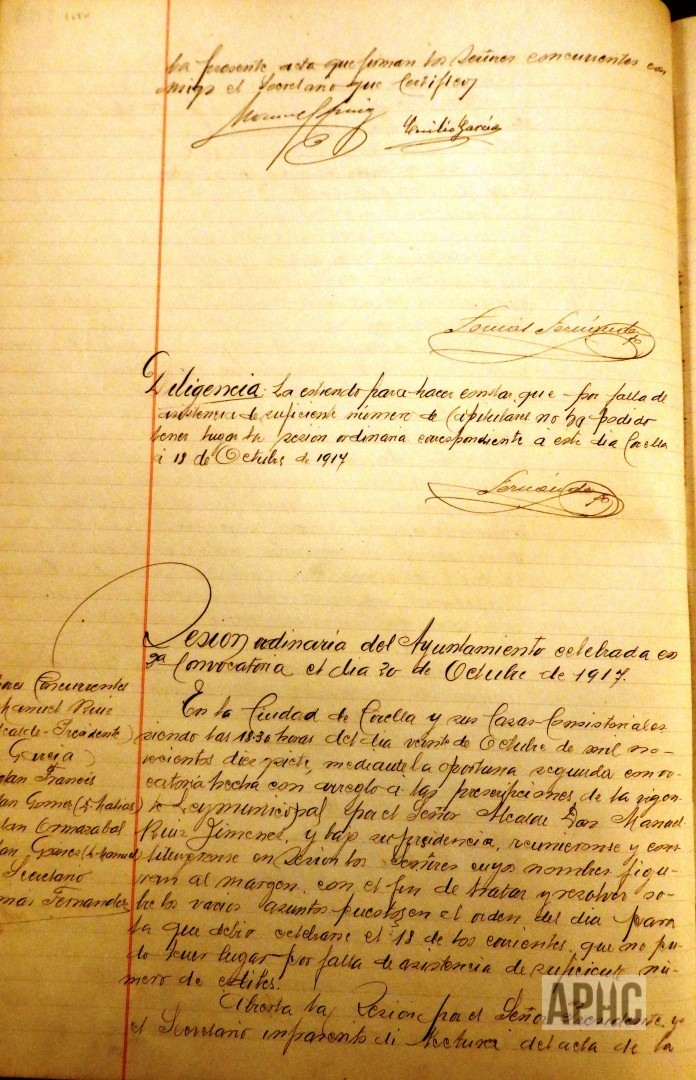 la presente acta que firman los Señores concurrentes con
migo el Secretario que Certifico
Manuel Ruiz
Emilio García
Tomás Fernández
Diligencia: La extiendo para hacer constar que por falta de
asistencia de suficiente número de Capitulares no ha podido
tener lugar la sesion ordinaria correspondiente a este dia Corella
a 18 de Octubre de 1917
Fernández
Sesion ordinaria del Ayuntamiento celebrada en
2ª Convocatoria el dia 20 de Octubre de 1917.
Concurrentes
Manuel Ruiz
Alcalde-Presidente
García
Francés
Gomez (D. Matias)
Ormazabal
Garcés (D. Manuel)
Secretario
Tomas Fernandez
En la Ciudad de Corella y sus Casas Consistoriales
siendo las 18:30 horas del dia veinte de Octubre de mil no-
vecientos diez y siete, mediante la oportuna segunda convo-
catoria hecha con arreglo a las prescripciones de la vigen-
te Ley municipal por el Señor Alcalde Don Manuel
Ruiz Jimenez, y bajo su presidencia, reunieronse y cons-
tituyeronse en Sesion los Señores cuyos nombres figu-
ran al margen, con el fin de tratar y resolver so-
bre los varios asuntos puestos en el orden del dia para
la que debio celebrarse el 18 de los corrientes, que no pu-
do tener lugar por falta de asistencia de suficiente nú-
mero de ediles.
Abierta la Sesion por el Señor Presidente, y
el Secretario infrascrito di lectura del acta de la
APHC